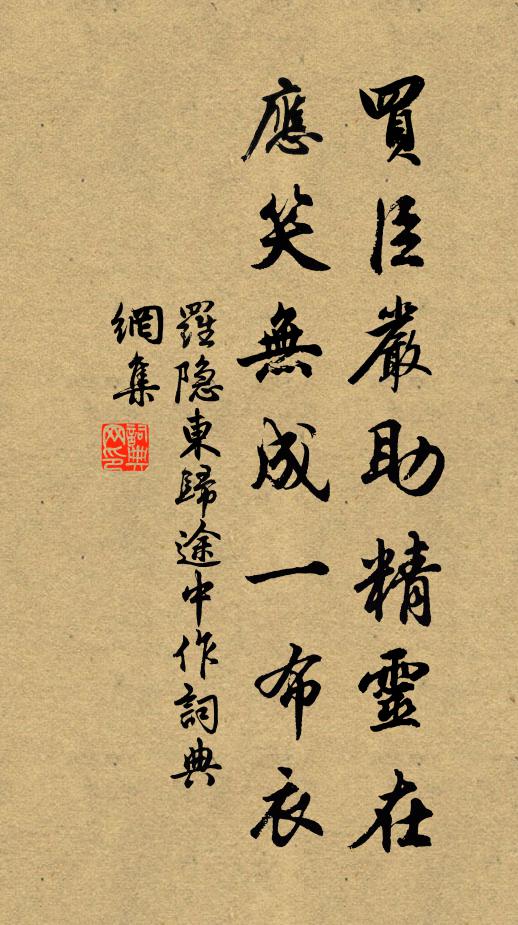 買臣嚴助精靈在
應笑無成一布衣
羅隐東歸途中作詞典
網集
詞典
网印